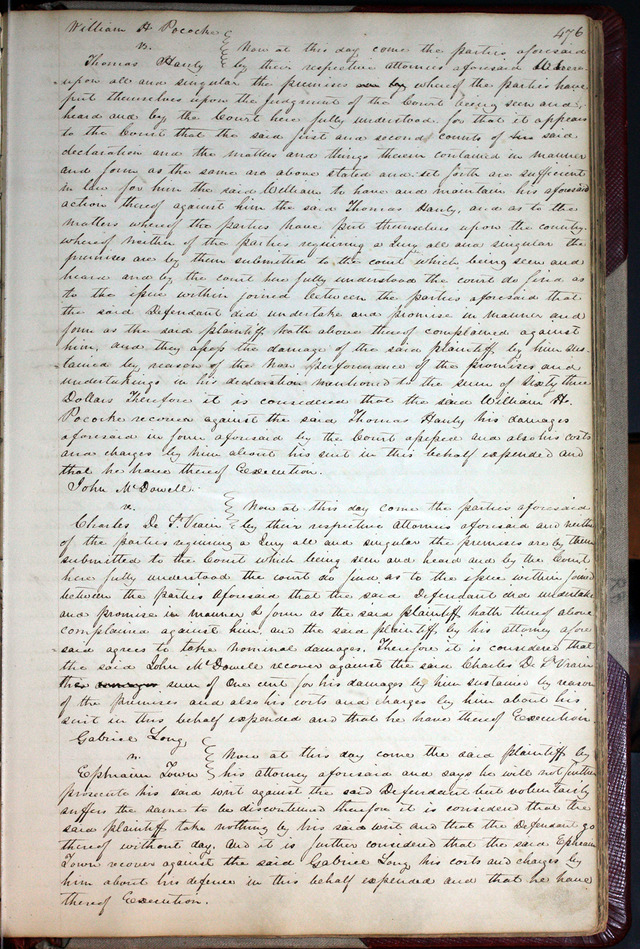 476
William H. Pococke
v. Now at this day come the parties aforesaid
Thomas Hanly by their respective attornies aforesaid Whereu-
upon all and singular the premises whereof the parties have
put themselves upon the Judgment of the Court being seen and
heard and by the Court here fully understood, for that it appears
to the Court that the said first and second counts of his said
declaration and the matters and things therein contained in manner
and form as the same are above stated and set forth are sufficient
in law for him the said William to have and maintain his aforesaid
action thereof against him the said Thomas Hanly, and as to the
matters whereof the parties have put themselves upon the country
whereof neither of the parties requiring a Jury all and singular the
premises are by them submitted to the court which being seen and
heard and by the court here fully understood the court do find as
to the issue within joined between the parties aforesaid that
the said Defendant did undertake and promise in manner and
form as the said plaintiff hath above thereof complained against
him, and they assess the damage of the said plaintiff by him sus-
tained by reason of the non performance of the promises and
undertakings in his declaration mentioned to the sum of Sixty three
Dollars Therefore it is considered that the said William H.
Pococke recover against the said Thomas Hanly his damages
aforesaid in form aforesaid by the Court assessed and also his costs
and charges by him about his suit in this behalf expended and
that he have thereof Execution.
John McDowell
v. Now at this day come the parties aforesaid
Charles De St. Vrain by their respective attornies aforesaid and neither
of the parties requiring a Jury all and singular the premises are by them
submitted to the Court which being seen and heard and by the Court
here fully understood the court do find as to the issue within joined
between the parties aforesaid that the said Defendant did undertake
and promise in manner & form as the said plaintiff hath thereof above
complained against him, and the said plaintiff by his attorney afore
said agrees to take nominal damages. Therefore it is considered that
the said John McDowell recover against the said Charles De St. Vrain
the sum of One cent for his damages by him sustained by reason
of the premises and also his costs and charges by him about his
suit in this behalf expended and that he have thereof Execution.
Gabriel Long
v. Now at this day come the said plaintiff by
Ephraim Town his attorney aforesaid and says he will not further
prosecute his said writ against the said Defendant but voluntarily
suffers the same to be discontinued therefore it is considered that the
said plaintiff take nothing by his said writ and that the Defendant go
thereof without day. And it is further considered that the said Ephraim
Town recover against the said Gabriel Long his costs and charges by
him about his defence in this behalf expended and that he have
thereof Execution.